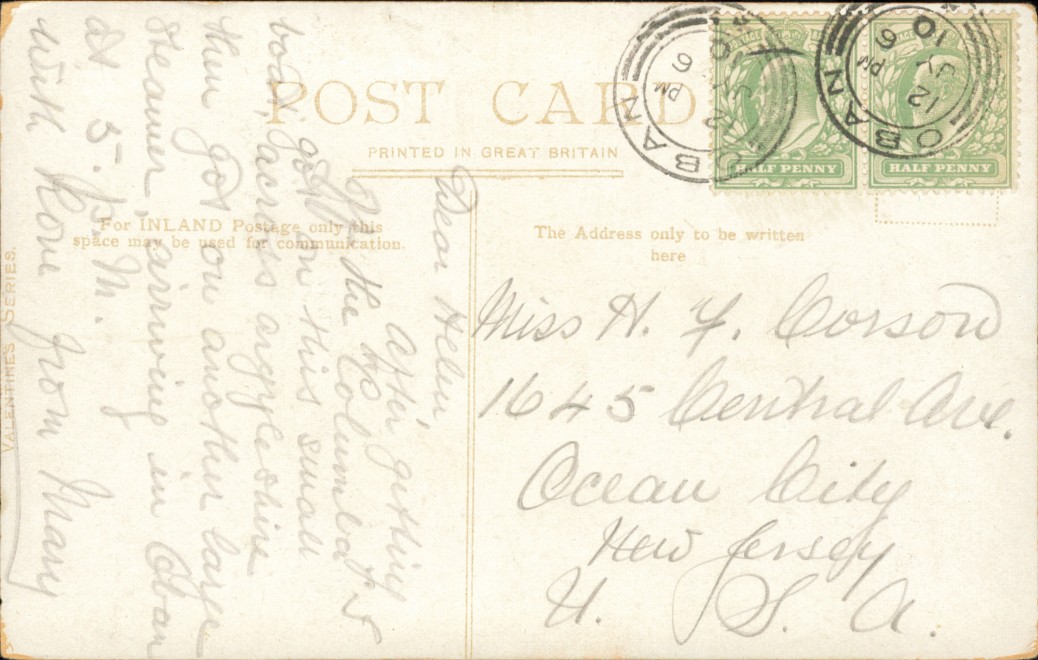 POST CARD
PRINTED IN GREAT BRITAIN
For INLAND Postage only this
space may be used for communication.
The Address only to be written
here
VALENTINES SERIES.
OBAN
6 PM
12 JY
10
OBAN
6 PM
12 JY
10
HALF PENNY
HALF PENNY
Dear Helen,
After getting
off the "Columba" I
got on this small
boat, across argyleshire
then got on another large
steamer, arriving in Oban
at 5. P. M.
with love from Mary
Miss H. F. Corson
1645 Central Ave.
Ocean City
New Jersey
U. S. A.